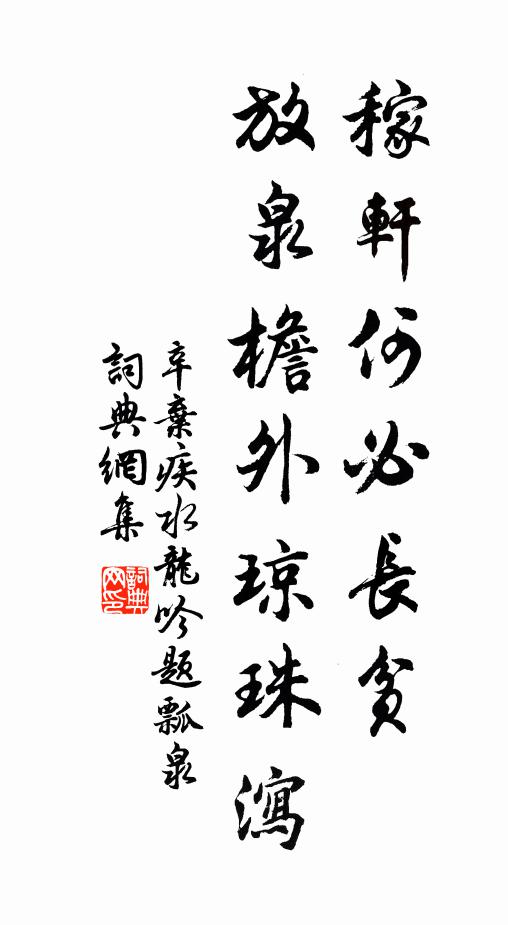 稼軒何必長貧
放泉檐外琼珠瀉
辛棄疾水龍吟题瓢泉
詞典網集
詞典網印